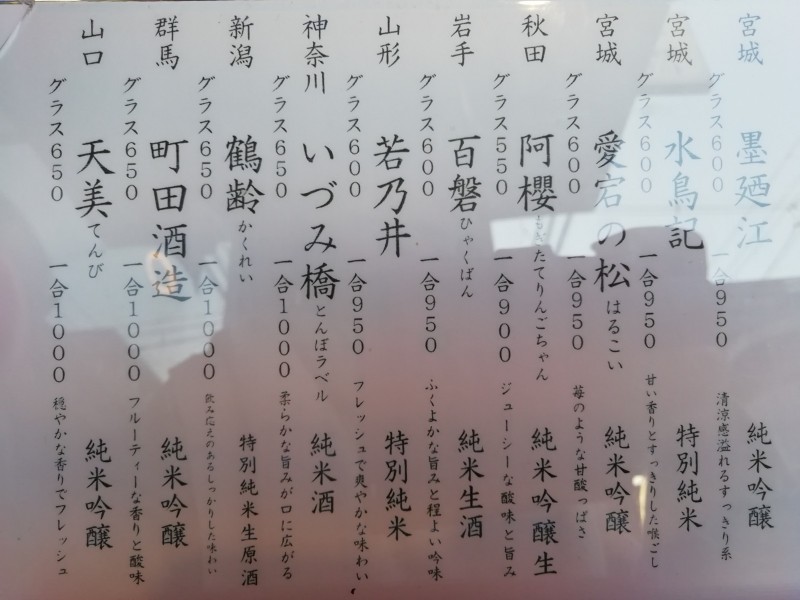 宮城 墨廼江 純米吟醸
グラス600 一合950 清涼感溢れるすっきり系
宮城 水鳥記 特別純米
グラス600 一合950 甘い香りとすっきりした喉ごし
宮城 愛宕の松 はるこい 純米吟醸
グラス600 一合950 苺のような甘酸っぱさ
秋田 阿櫻 もぎたてりんごちゃん 純米吟醸生
グラス550 一合900 ジューシーな酸味と旨み
岩手 百磐 ひゃくばん 純米生酒
グラス600 一合950 ふくよかな旨みと程よい吟味
山形 若乃井 特別純米
グラス600 一合950 フレッシュで爽やかな味わい
神奈川 いづみ橋 とんぼラベル 純米酒
グラス650 一合1000 柔らかな旨みが口に広がる
新潟 鶴齢 かくれい 特別純米生原酒
グラス650 一合1000 飲み応えのあるしっかりした味わい
群馬 町田酒造 純米吟醸
グラス650 一合1000 フルーティーな香りと酸味
山口 天美 てんび 純米吟醸
グラス650 一合1000 穏やかな香りでフレッシュ